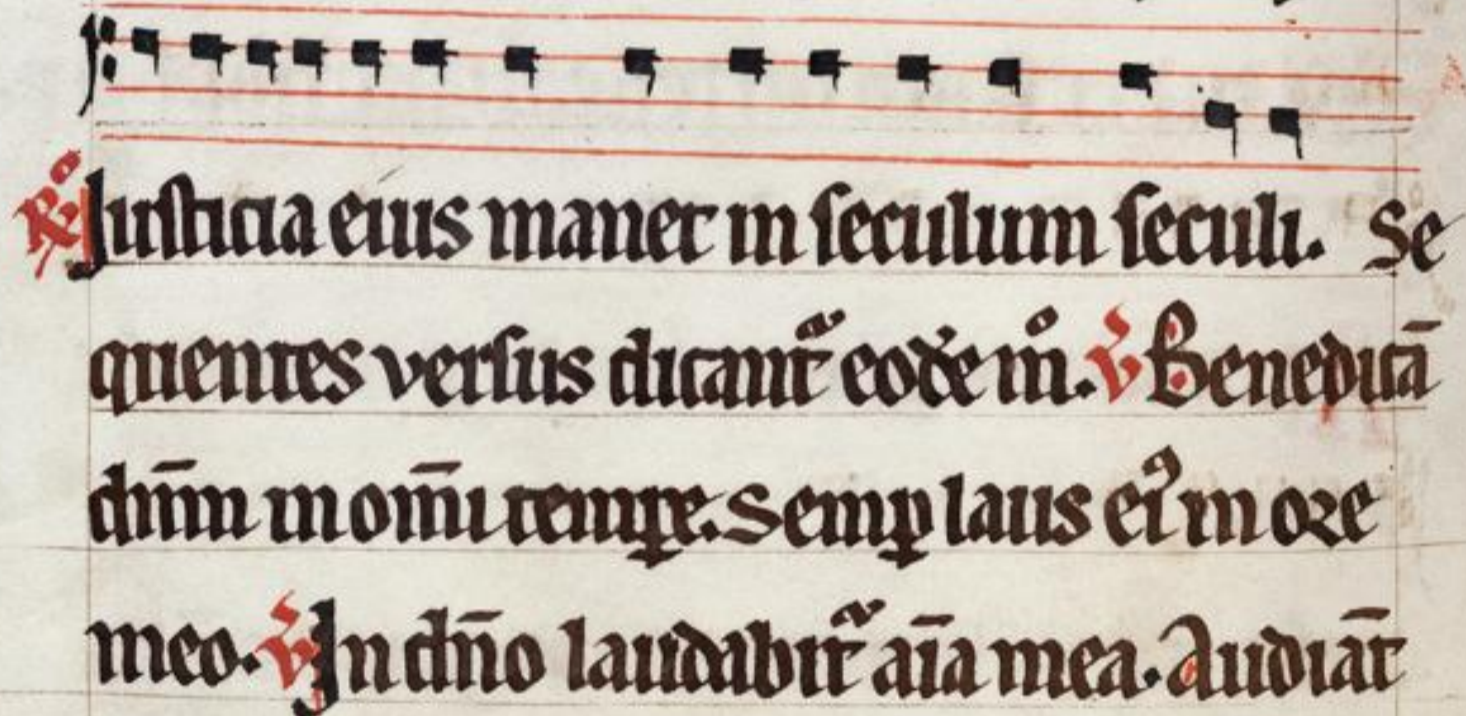 R̸ Justicia eius manet in seculum seculi. Se
quentes versus dicant᷑ eodē mͦ. V̄ Benedicā
dn̄m in om̄i temꝑe. Semꝑ laus eiꝰ in ore
meo. V̄ In dn̄o laudabit᷑ aīa mea. Audiāt